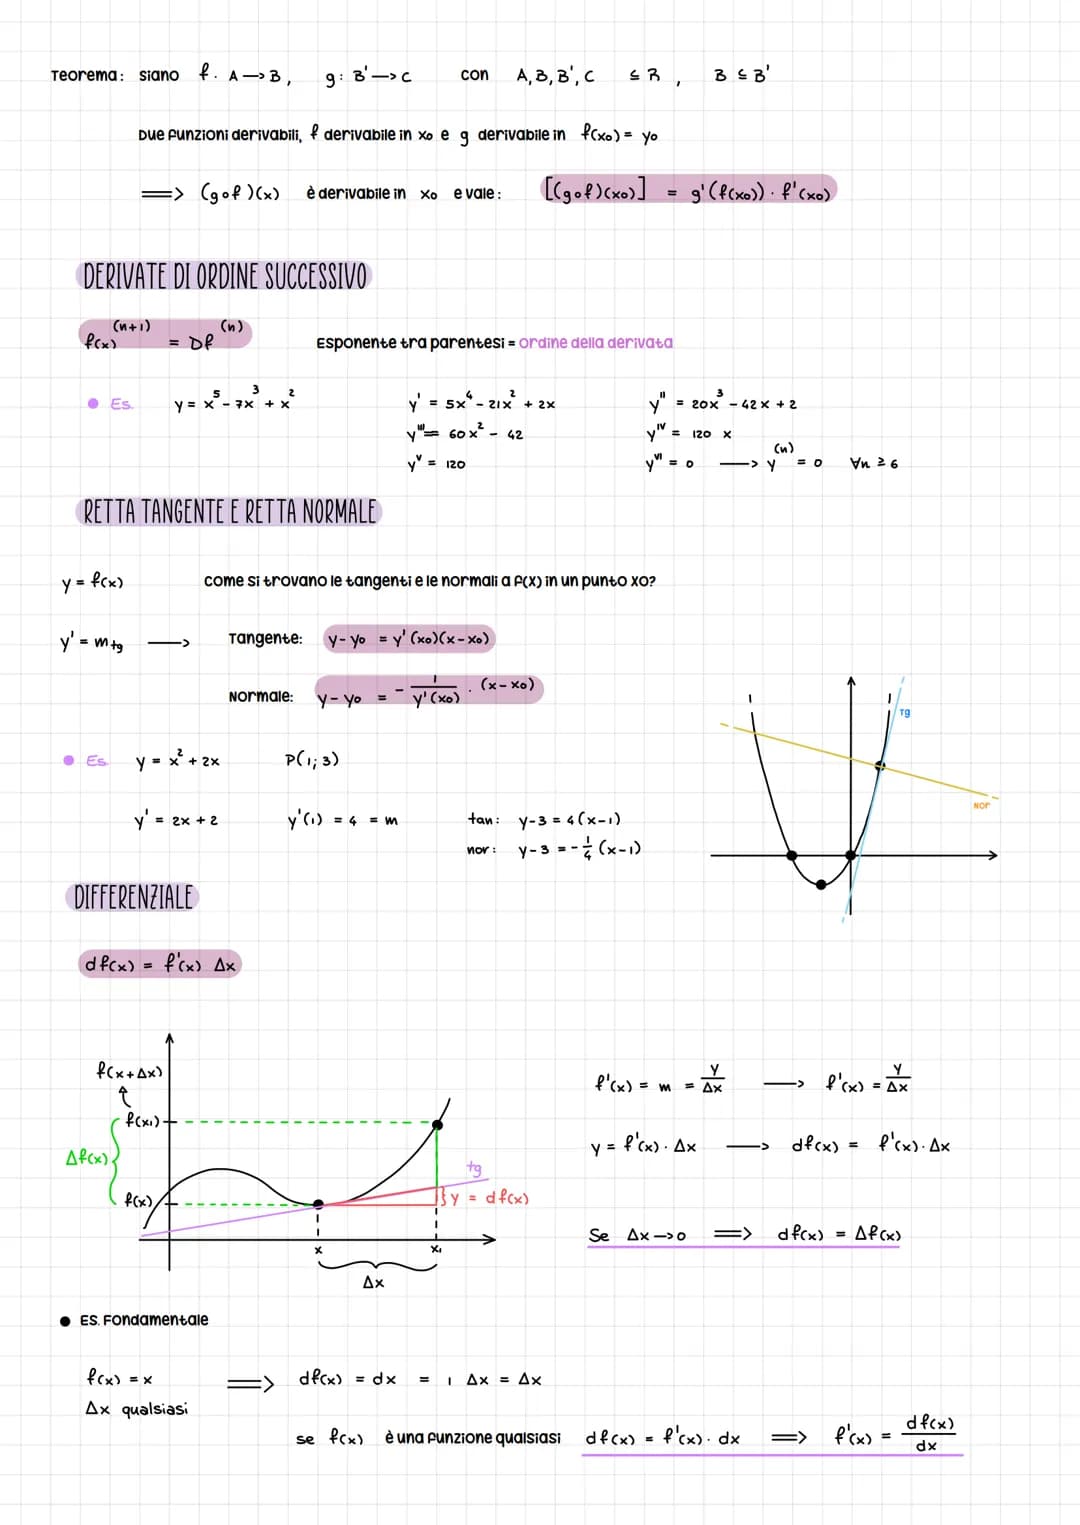 Teorema: siano f: A → B, g: B' → C con A, B, B', C ⊆ R, B ⊆ B'
Due funzioni derivabili, f derivabile in x₀ e g derivabile in f(x₀) = y₀
⟹ (g∘f)(x) è derivabile in x₀ e vale: [(g∘f)(x₀)] = g'(f(x₀)) · f'(x₀)
DERIVATE DI ORDINE SUCCESSIVO
f(x)⁽ⁿ⁺¹⁾ = Df⁽ⁿ⁾ Esponente tra parentesi = ordine della derivata
• Es. y = x⁵ - 7x³ + x² y' = 5x⁴ - 21x² + 2x y'' = 20x³ - 42x + 2
y''' = 60x² - 42 yᴵⱽ = 120 x
yⱽ = 120 yⱽᴵ = 0 → y⁽ⁿ⁾ = 0 ∀n ≥ 6
RETTA TANGENTE E RETTA NORMALE
y = f(x) come si trovano le tangenti e le normali a f(x) in un punto x0?
y' = m tg → Tangente: y - y₀ = y'(x₀)(x - x₀)
Normale: y - y₀ = - 1/y'(x₀) · (x - x₀)
Tg
• Es. y = x² + 2x P(1; 3)
Nor
y' = 2x + 2 y'(1) = 4 = m tan: y - 3 = 4(x - 1)
nor: y - 3 = - 1/4 (x - 1)
DIFFERENZIALE
df(x) = f'(x) Δx
f(x + Δx)
f(x₁)
Δf(x)
tg
f(x)
y = df(x)
x x₁
Δx
f'(x) = m = y/Δx → f'(x) = y/Δx
y = f'(x) · Δx → df(x) = f'(x) · Δx
Se Δx → 0 ⟹ df(x) = Δf(x)
• ES. Fondamentale
f(x) = x ⟹ df(x) = dx = 1 Δx = Δx
Δx qualsiasi
se f(x) è una funzione qualsiasi df(x) = f'(x) · dx ⟹ f'(x) = df(x)/dx